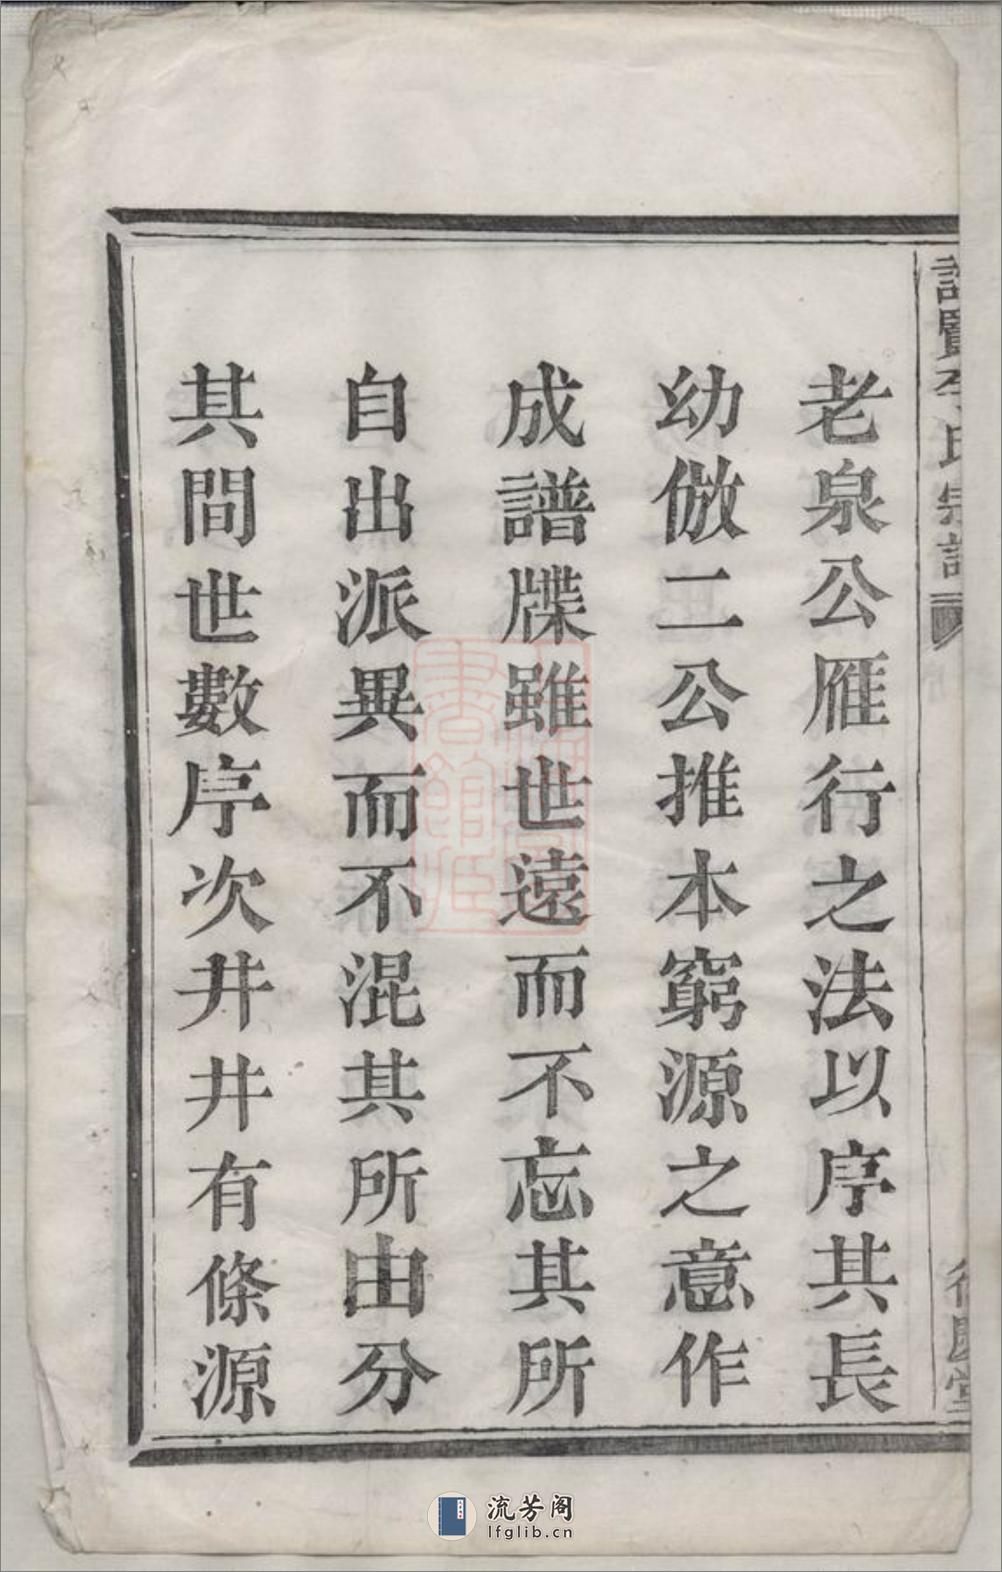 老泉公雁行之法以序其長
幼倣二公推本窮源之意作
成譜牒雖世遠而不忘其所
自出派異而不混其所由分
其間世數序次井井有條源
李氏宗譜
堂
流芳阁
lfglib.cn